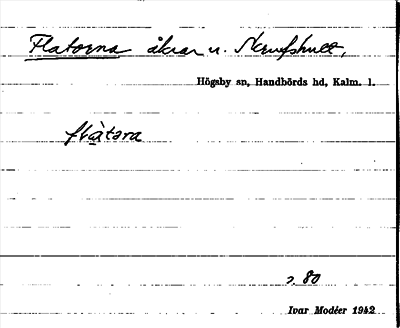 Flatorna åkrar u.
Högsby sn, Handbörds hd, Kalm. l.
flàtɷra
s. 80
Ivar Modéer 1942